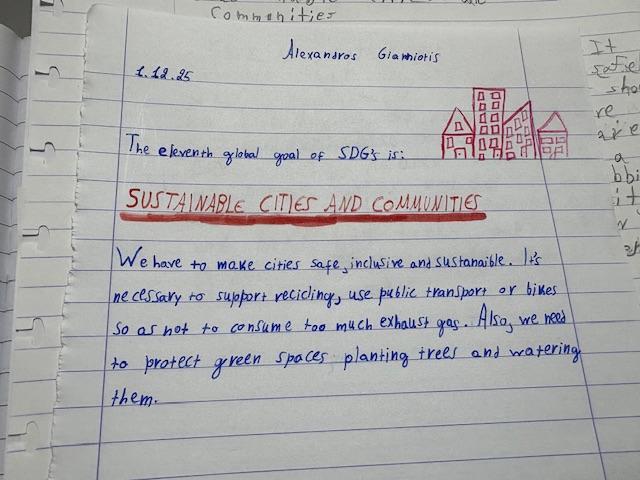 Communities
Alexandros Gianniotis
1.12.25
The eleventh global goal of SDG's is:
SUSTAINABLE CITIES AND COMMUNITIES
We have to make cities safe, inclusive and sustanaible. It's
necessary to support recicling, use public transport or bikes
so as not to consume too much exhaust gas. Also, we need
to protect green spaces planting trees and watering
them.
It
sho
re
are
a
bbi
it